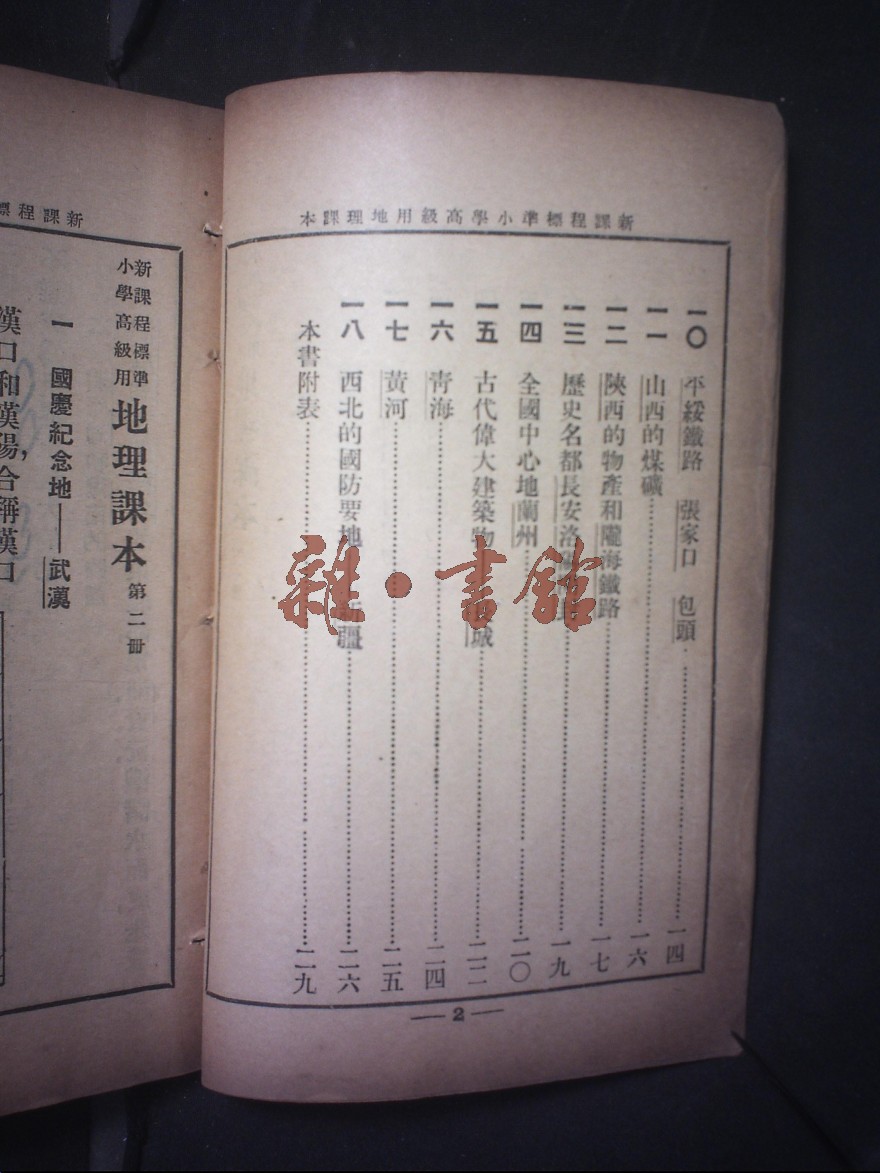 新課程標準小學高級用地理課本
一〇 平綏鐵路 張家口 包頭……一四
一一 山西的煤礦……一六
一二 陝西的物產和隴海鐵路……一七
一三 歷史名都長安洛……一九
一四 全國中心地蘭州……二〇
一五 古代偉大建築物 城……二二
一六 青海……二四
一七 黃河……二五
一八 西北的國防要地 疆……二六
本書附表……二九
—2—
新課程標
新課程標準
小學高級用
地理課本 第二冊
一 國慶紀念地——武漢
漢口和漢陽,合稱漢口
雜·書館